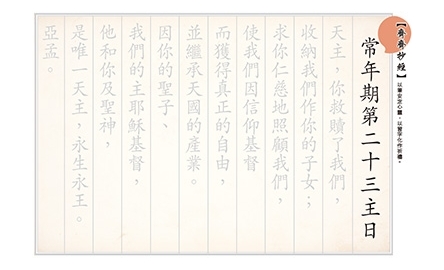 【齊齊抄經】
以筆安定心靈，以習字化作祈禱。
常年期第二十三主日
天主，你救贖了我們，
收納我們作你的子女；
求你仁慈地照顧我們，
使我們因信仰基督
而獲得真正的自由，
並繼承天國的產業。
因你的聖子、
我們的主耶穌基督，
他和你及聖神，
是唯一天主，永生永王。
亞孟。